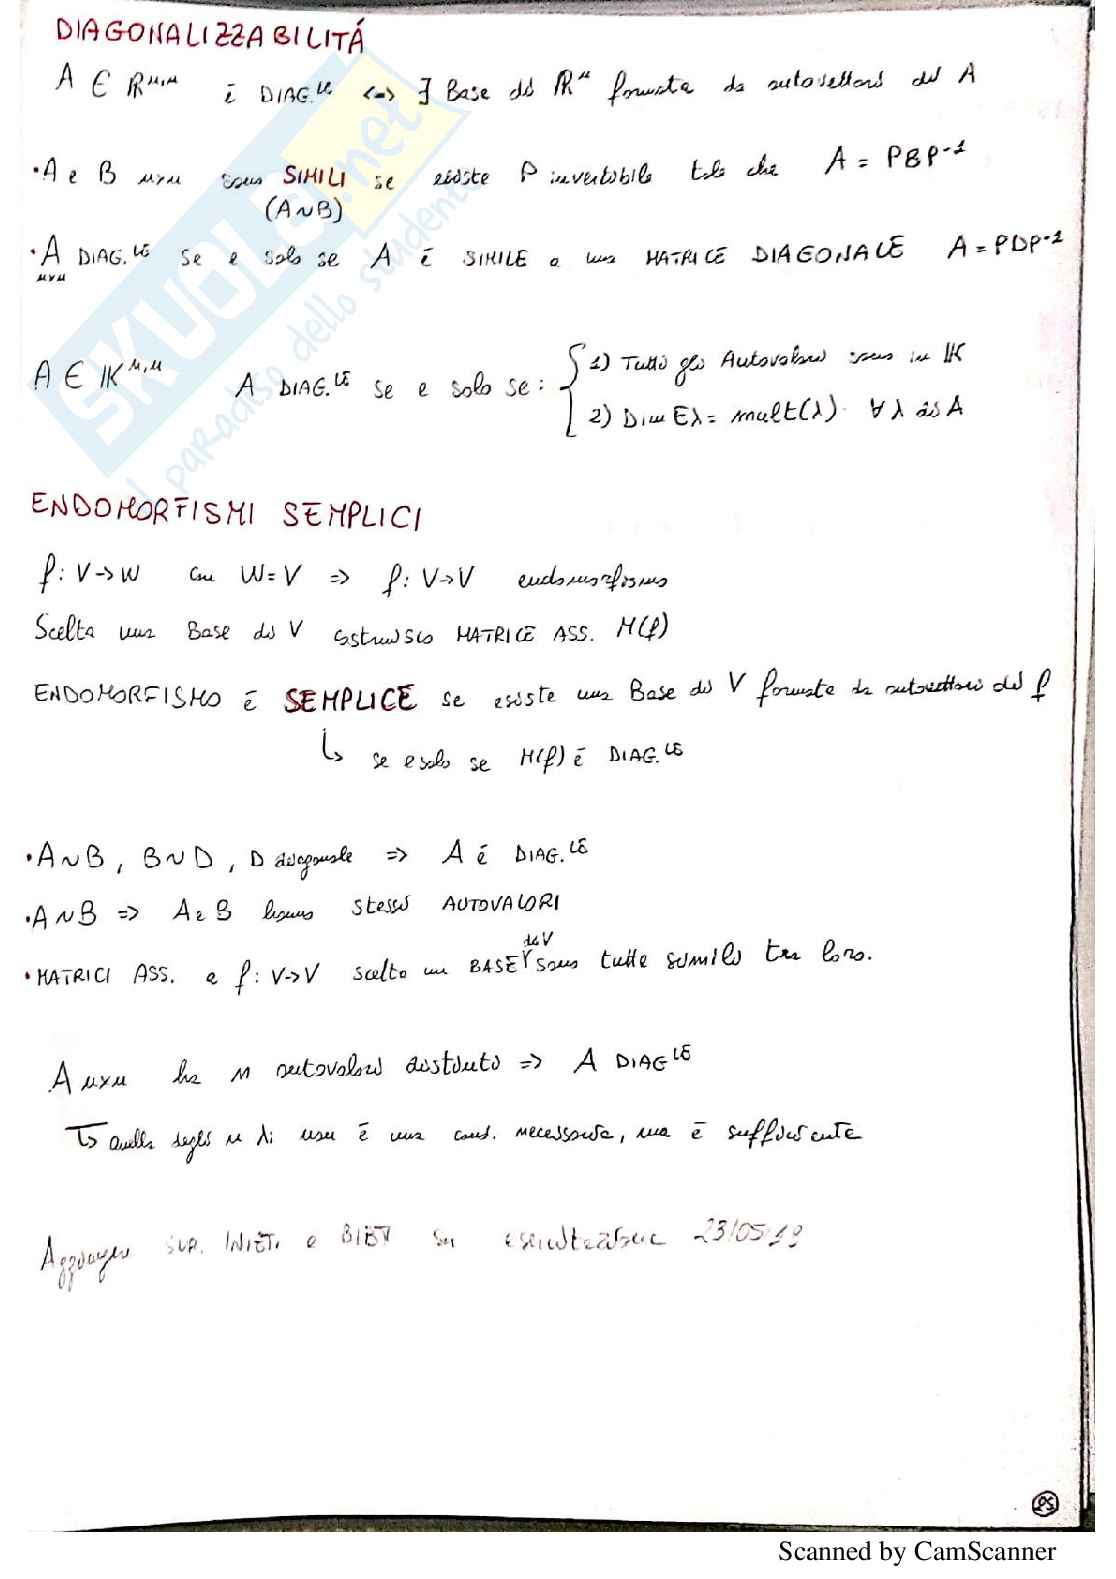 DIAGONALIZZABILITÁ
A ∈ ℝⁿ,ⁿ è DIAG.LE <-> ∃ Base di ℝⁿ formata da autovettori di A
• A e B nxn sono SIMILI se esiste P invertibile tale che A = PBP⁻¹
(A∼B)
• A DIAG.LE se e solo se A è SIMILE a una MATRICE DIAGONALE A = PDP⁻¹
nxn
A ∈ 𝕂ⁿ,ⁿ A DIAG.LE se e solo se: { 1) Tutti gli Autovalori sono in 𝕂
2) Dim Eλ = mult(λ) ∀ λ di A
ENDOMORFISMI SEMPLICI
f: V→W con W=V => f: V→V endomorfismo
Scelta una Base di V costruisco MATRICE ASS. M(f)
ENDOMORFISMO è SEMPLICE se esiste una Base di V formata da autovettori di f
↳ se e solo se M(f) è DIAG.LE
• A∼B, B∼D, D diagonale => A é DIAG.LE
• A∼B => A e B hanno stessi AUTOVALORI
• MATRICI ASS. a f: V→V scelta un BASE di V sono tutte simili tra loro.
A nxn ha n autovalori distinti => A DIAG.LE
↳ quella degli n λi non è una cond. necessaria, ma è sufficiente
SUR. INIET. e BIET 23/05/19
25
SKUOLA.net
il paradiso dello studente
Scanned by CamScanner